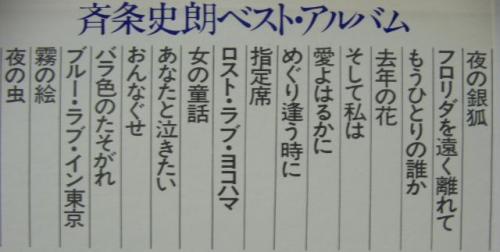 斉条史朗ベスト・アルバム
夜の銀狐
フロリダを遠く離れて
もうひとりの誰か
去年の花
そして私は
愛よはるかに
めぐり逢う時に
指定席
ロスト・ラブ・ヨコハマ
女の童話
あなたと泣きたい
おんなぐせ
バラ色のたそがれ
ブルー・ラブ・イン東京
霧の絵
夜の虫